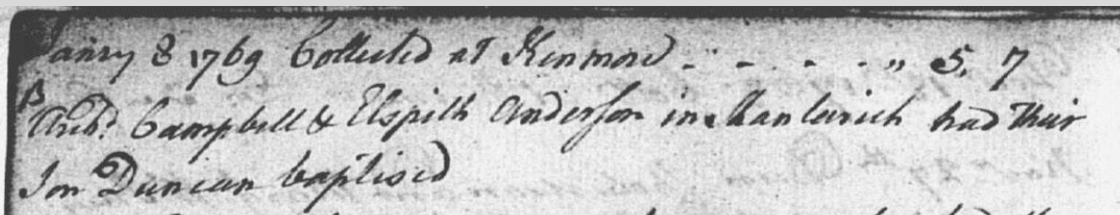 Janry 8 1769 Collected at Kenmore - - - - " 5, 7
B
Archd Campbell & Elspith Anderson in had their
Son Duncan baptised